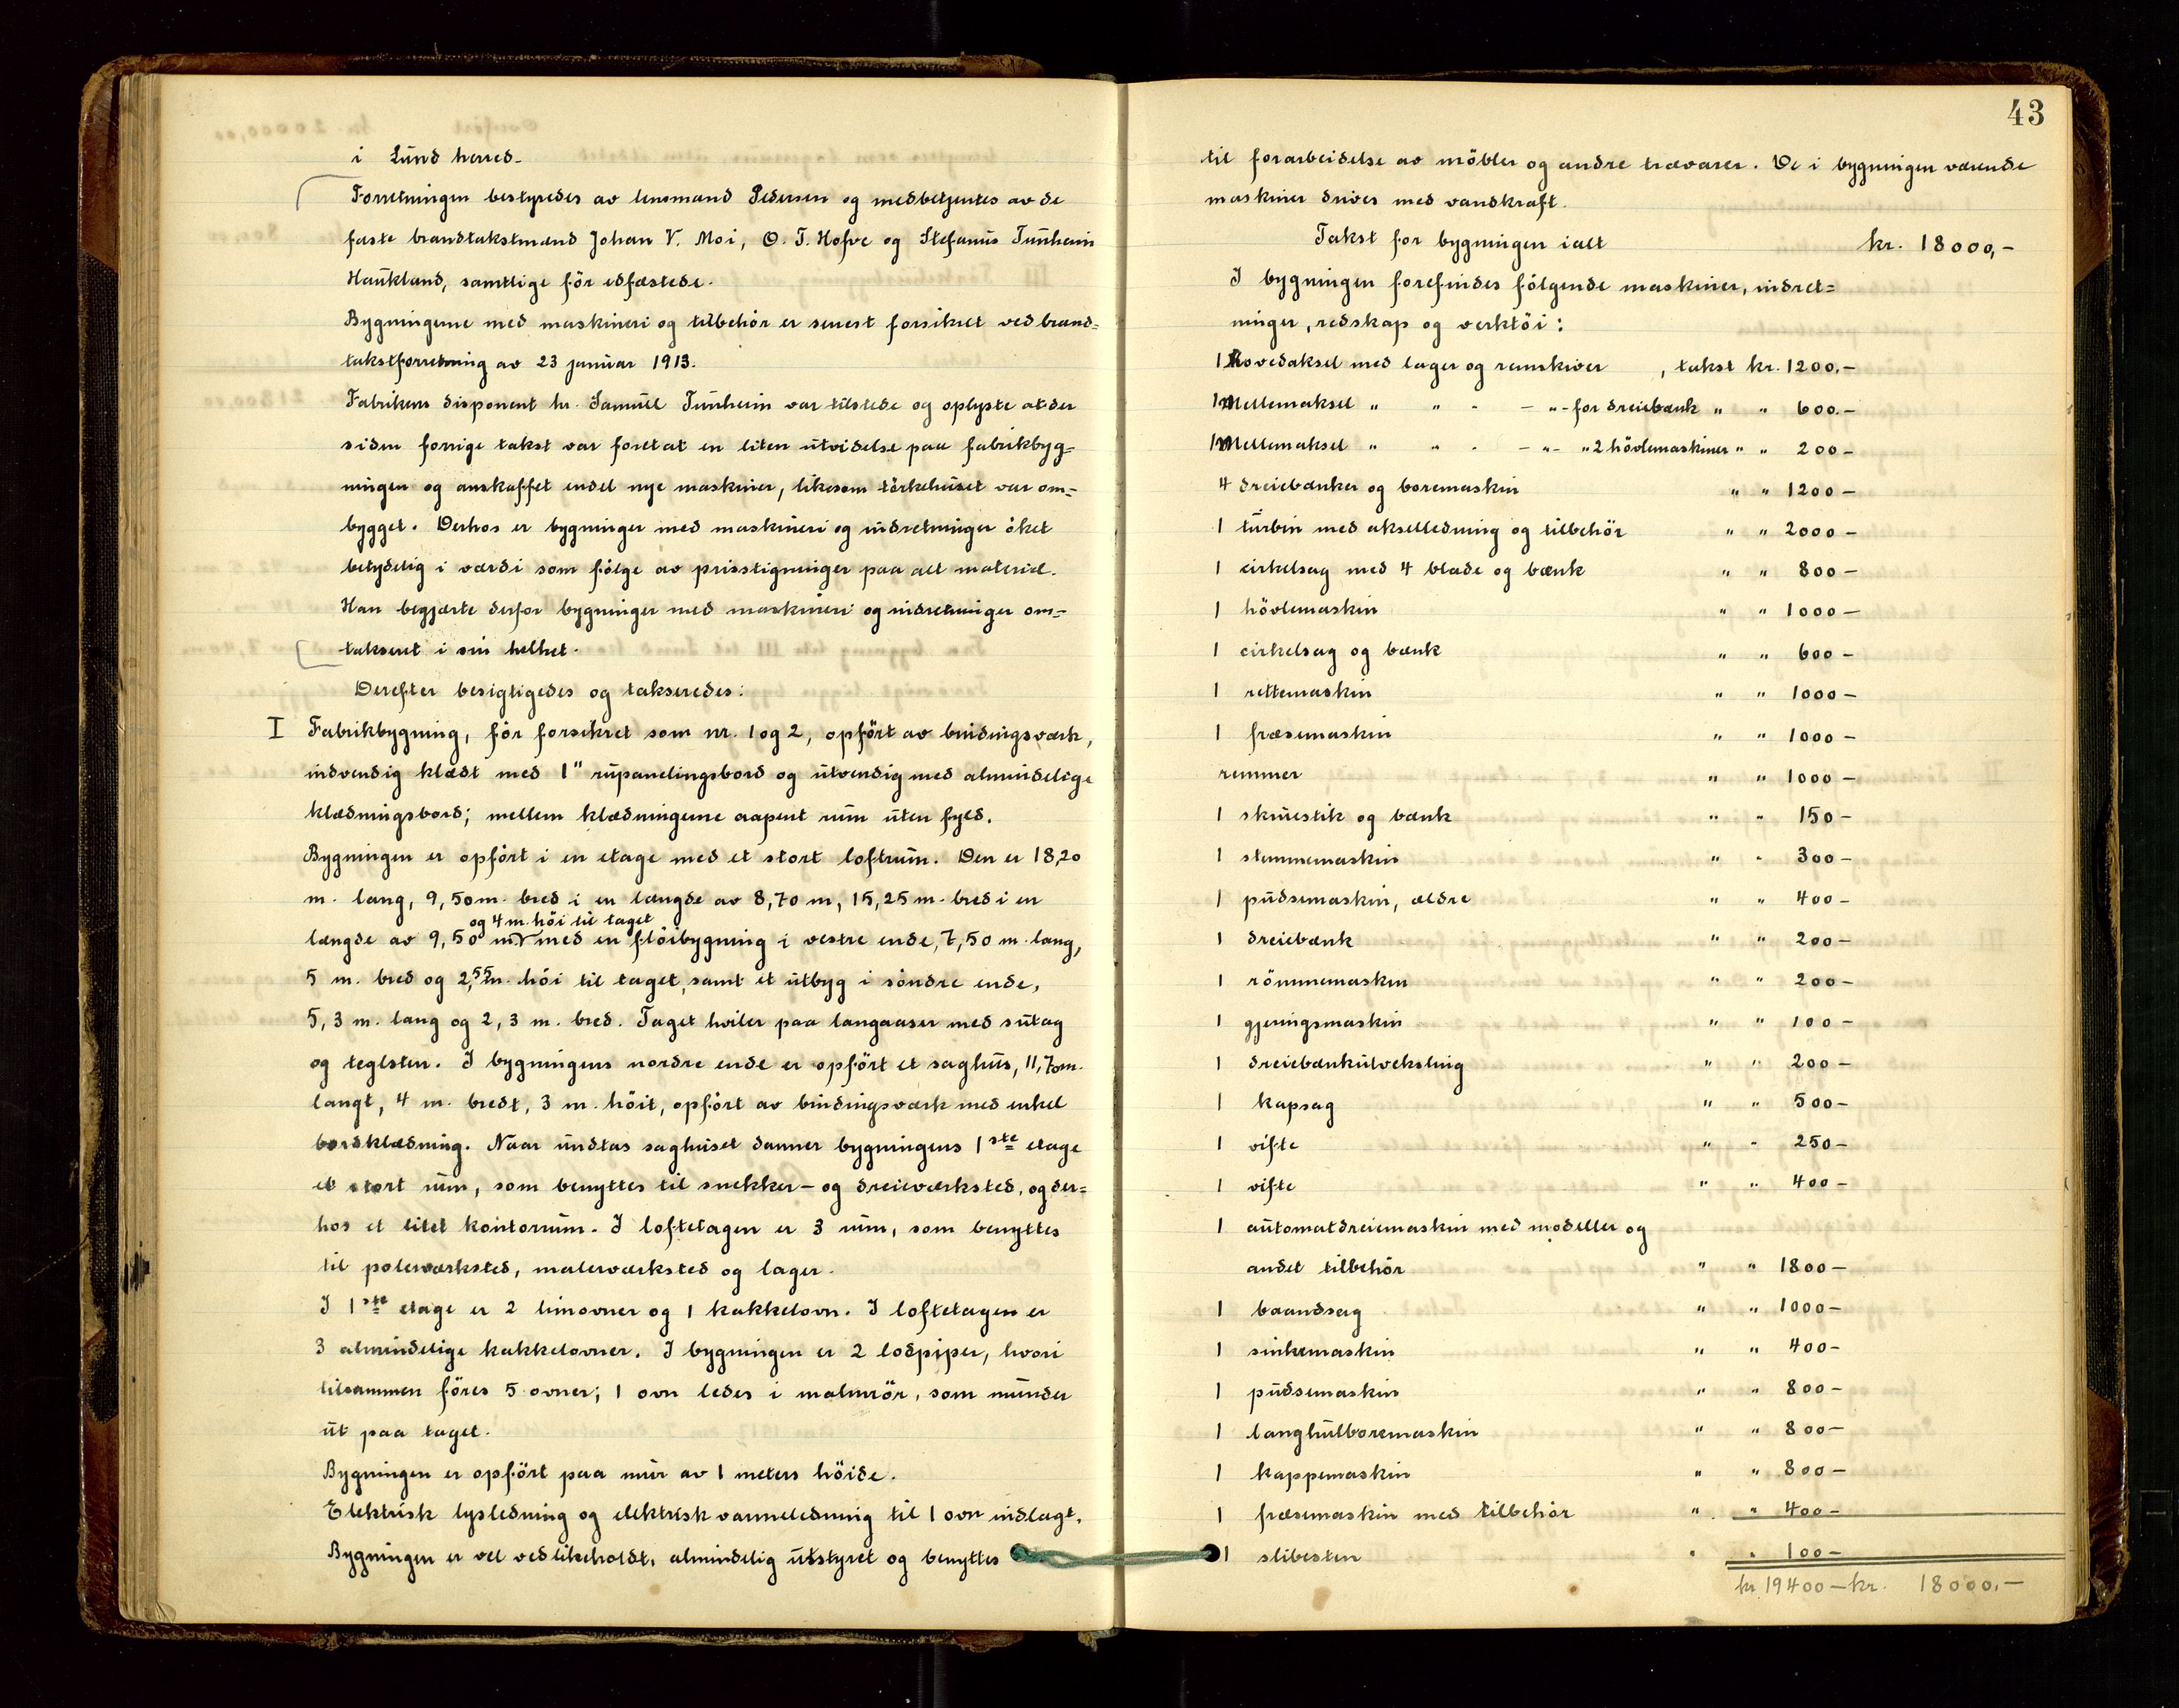 i Lund herred.
Forretningen bestyredes av lensmand Pedersen og medbetjentes av de
faste brandtakstmænd Johan V. Moi, O. T. Hofve og Stefanus Tunheim
Haukland, samtlige før edfæstede.
Bygningerne med maskineri og tilbehör er senest forsikret ved brand=
takstforretning av 23 januar 1913.
Fabrikens disponent hr. Samuel Tunheim var tilstede og oplyste at der
siden forrige takst var foretat en liten utvidelse paa fabrikbyg=
ningen og anskaffet endel nye maskiner, likesom törkehuset var om=
bygget. Derhos er bygninger med maskineri og indretninger öket
betydelig i værdi som fölge av prisstigninger paa alt material.
Han begjærte derfor bygninger med maskineri og indretninger om=
taksert i sin helhet.
Derefter besigtigedes og takseredes:
I Fabrikbygning, för forsikret som nr. 1 og 2, opfört av bindingsværk,
indvendig klædt med 1" rupanelingsbord og utvendig med almindelige
klædningsbord; mellem klædningerne aapent rum uten fyld.
Bygningen er opfört i en etage med et stort loftrum. Den er 18,20
m. lang, 9,50 m. bred i en længde av 8,70 m, 15,25 m. bred i en
og 4 m. höi til taget
længde av 9,50 m. med en flöibygning i vestre ende, 7,50 m. lang,
5 m. bred og 2,55 m. höi til taget, samt et utbyg i söndre ende,
5,3 m. lang og 2,3 m. bred. Taget hviler paa langaaser med sutag
og teglsten. I bygningens nordre ende er opfört et saghus, 11,70 m.
langt, 4 m. bredt, 3 m. höit, opfört av bindingsværk med enkel
bordklædning. Naar undtas saghuset danner bygningens 1ste etage
et stort rum, som benyttes til snekker- og dreieværksted, og der=
hos et litet kontorrum. I loftetagen er 3 rum, som benyttes
til polerværksted, malerværksted og lager.
I 1ste etage er 2 limovner og 1 kakkelovn. I loftetagen er
3 almindelige kakkelovner. I bygningen er 2 lodpiper, hvori
tilsammen föres 5 ovner; 1 ovn ledes i malmrör, som munder
ut paa taget.
Bygningen er opfört paa mur av 1 meters höide.
Elektrisk lysledning og elektrisk varmeledning til 1 ovn indlagt.
Bygningen er vel vedlikeholdt, almindelig utstyret og benyttes
43
til forarbeidelse av möbler og andre trævarer. De i bygningen værende
maskiner drives med vandkraft.
Takst for bygningen ialt kr. 18000,-
I bygningen forefindes fölgende maskiner, indret=
ninger, redskap og verktöi:
1 Hovedaksel med lager og remskiver , takst kr. 1200.-
1 Mellemaksel " " - - "- for dreiebænk " " 600.-
1 Mellemaksel " " - - "- " 2 hövlemaskiner " " 200-
4 dreiebænker og boremaskin " " 1200-
1 turbin med akselledning og tilbehör " " 2000-
1 cirkelsag med 4 blade og bænk " " 800-
1 hövlemaskin " " 1000-
1 cirkelsag og bænk " " 600-
1 rettemaskin " " 1000-
1 fræsemaskin " " 1000-
remmer " " 1000-
1 skruestik og bænk " " 150-
1 stemmemaskin " " 300-
1 pudsemaskin, ældre " " 400-
1 dreiebænk " " 200-
1 römmemaskin " " 200-
1 gjeringsmaskin " " 100-
1 dreiebænkutveksling " " 200-
1 kapsag " " 500-
1 vifte " " 250-
1 vifte " " 400-
1 automatdreiemaskin med modeller og
andet tilbehör " " 1800-
1 baandsag " " 1000-
1 sinkemaskin " " 400-
1 pudsemaskin " " 800-
1 langhulboremaskin " " 800-
1 kappemaskin " " 800-
1 fræsemaskin med tilbehör " " 400-
1 slibesten " " 100-
kr 19400- kr. 18000.-